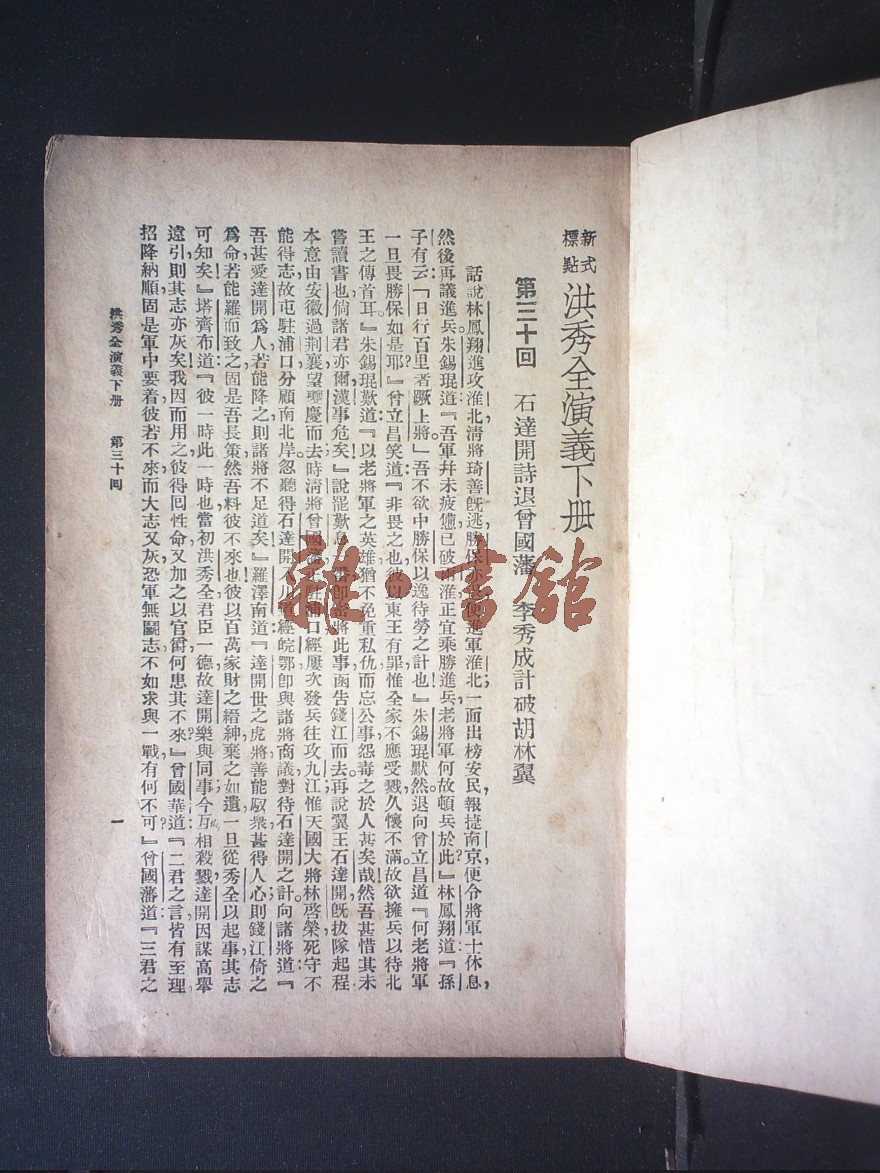 新式標點 洪秀全演義下册
第三十回　石達開詩退曾國藩　李秀成計破胡林翼
話說林鳳翔進攻淮北淸將琦善旣逃勝保亦 進軍淮北；一面出榜安民，報捷南京，便令將軍士休息，
然後再議進兵。朱錫琨道：『吾軍幷未疲憊已破兩淮正宜乘勝進兵老將軍何故頓兵於此？』林鳳翔道：『孫
子有云：「日行百里者蹶上將」吾不欲中勝保以逸待勞之計也！』朱錫琨默然。退向曾立昌道：『何老將軍
一旦畏勝保如是耶？』曾立昌笑道：『非畏之也！彼以東王有罪惟全家不應受戮，久懷不滿。故欲擁兵以待北
王之傳首耳。』朱錫琨歎道：『以老將軍之英雄猶不免重私仇而忘公事，怨毒之於人甚矣哉！然吾甚惜其未
嘗讀書也！倘諸君亦爾，漢事危矣！』說罷歎息， 卽密將此事函告錢江而去。再說翼王石達開旣拔隊起程
本意由安徽過荆襄望夔慶而去，時淸將曾國藩正駐浦口經屢次發兵往攻九江，惟天國大將林啓榮死守不
能得志，故屯駐浦口分顧南北岸，忽聽得石達開入川道經皖鄂卽與諸將商議對待石達開之計。向諸將道：『
吾甚愛達開爲人若能降之則諸將不足道矣！』羅澤南道：『達開世之虎將善能馭衆甚得人心，則錢江倚之
爲命，若能羅而致之，固是吾長策。然吾料彼不來也！彼以百萬家財之縉紳棄之如遺，一旦從秀全以起事其志
可知矣！』塔齊布道：『彼一時此一時也！當初洪秀全君臣一德，故達開樂與同事，今互相殺戮，達開因謀高舉
遠引，則其志亦灰矣！我因而用之，彼得回性命，又加之以官爵，何患其不來？』曾國華道：『二君之言皆有至理
招降納順，固是軍中要着，彼若不來而大志又灰恐軍無鬭志，不如求與一戰有何不可？』曾國藩道：『三君之
洪秀全演義下册　第三十回
一
雜·書館